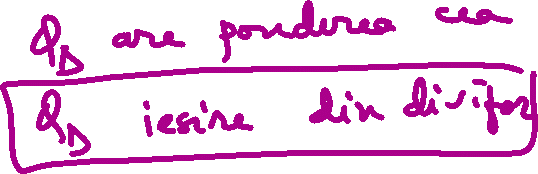 Q_D are ponderea cea
Q_D iesire din divizor